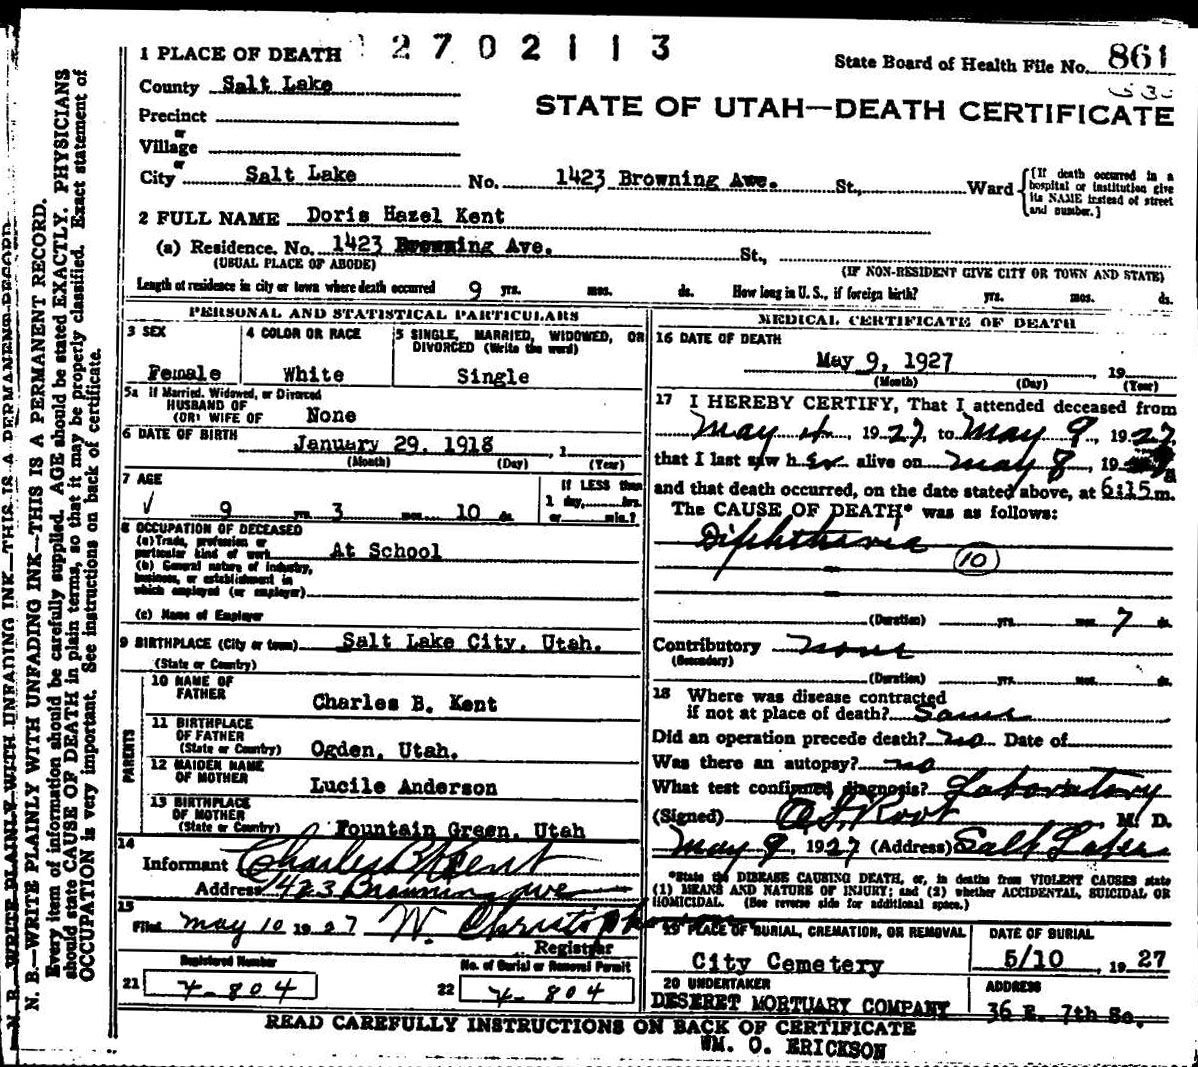 1 PLACE OF DEATH 2702113
State Board of Health File No. 861
County Salt Lake
STATE OF UTAH—DEATH CERTIFICATE
Precinct
or
Village
or
City Salt Lake No. 1423 Browning Ave. St., Ward {[If death occurred in a hospital or institution give its NAME instead of street and number.]
2 FULL NAME Doris Hazel Kent
(a) Residence. No. 1423 Browning Ave. St.,
(USUAL PLACE OF ABODE) (IF NON-RESIDENT GIVE CITY OR TOWN AND STATE)
Length of residence in city or town where death occurred 9 yrs. mos. ds. How long in U. S., if foreign birth? yrs. mos. ds.
PERSONAL AND STATISTICAL PARTICULARS
3 SEX
Female
4 COLOR OR RACE
White
5 SINGLE, MARRIED, WIDOWED, OR
DIVORCED (Write the word)
Single
5a If Married, Widowed, or Divorced
HUSBAND OF
(OR) WIFE OF None
6 DATE OF BIRTH
January 29, 1918 , 1
(Month) (Day) (Year)
7 AGE
9 yrs. 3 mos. 10 ds.
If LESS than
1 day, hrs.
or min.?
8 OCCUPATION OF DECEASED
(a) Trade, profession or
particular kind of work At School
(b) General nature of industry,
business, or establishment in
which employed (or employer)
(c) Name of Employer
9 BIRTHPLACE (City or town) Salt Lake City, Utah.
(State or Country)
PARENTS
10 NAME OF
FATHER Charles B. Kent
11 BIRTHPLACE
OF FATHER
(State or Country) Ogden, Utah.
12 MAIDEN NAME
OF MOTHER Lucile Anderson
13 BIRTHPLACE
OF MOTHER
(State or Country) Fountain Green, Utah
14
Informant Charles B Kent
Address 1423 Browning ave
15
Filed May 10 1927 W. Christopherson
Registrar
21 Registered Number
4-804
22 No. of Burial or Removal Permit
4-804
MEDICAL CERTIFICATE OF DEATH
16 DATE OF DEATH
May 9, 1927 19
(Month) (Day) (Year)
17 I HEREBY CERTIFY, That I attended deceased from
May 4, 1927, to May 9, 1927,
that I last saw her alive on May 8, 19
and that death occurred, on the date stated above, at 6:15 m.
The CAUSE OF DEATH* was as follows:
Diphtheria
10
(Duration) yrs. mos. 7 ds.
Contributory none
(Secondary)
(Duration) yrs. mos. ds.
18 Where was disease contracted
if not at place of death? Same
Did an operation precede death? no Date of
Was there an autopsy? no
What test confirmed diagnosis? Laboratory
(Signed) Root, M. D.
May 9, 1927 (Address) Salt Lake
*State the DISEASE CAUSING DEATH, or, in deaths from VIOLENT CAUSES state
(1) MEANS AND NATURE OF INJURY; and (2) whether ACCIDENTAL, SUICIDAL OR
HOMICIDAL. (See reverse side for additional space.)
19 PLACE OF BURIAL, CREMATION, OR REMOVAL
City Cemetery
DATE OF BURIAL
5/10, 1927
20 UNDERTAKER
DESERET MORTUARY COMPANY
ADDRESS
36 E. 7th So.
READ CAREFULLY INSTRUCTIONS ON BACK OF CERTIFICATE
WM. O. ERICKSON
N. B.—WRITE PLAINLY WITH UNFADING INK—THIS IS A PERMANENT RECORD
N. B.—WRITE PLAINLY WITH UNFADING INK—THIS IS A PERMANENT RECORD.
Every item of information should be carefully supplied. AGE should be stated EXACTLY. PHYSICIANS
should state CAUSE OF DEATH in plain terms, so that it may be properly classified. Exact statement of
OCCUPATION is very important. See instructions on back of certificate.